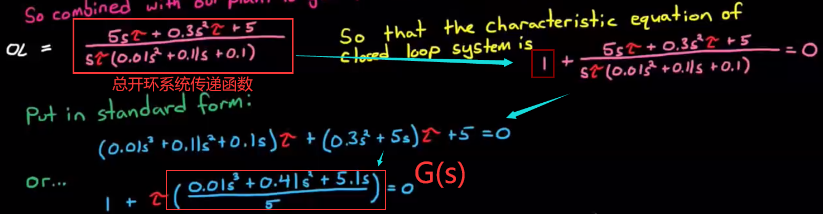 So combined with our plant is
OL = (5sτ + 0.3s²τ + 5) / (sτ(0.01s² + 0.11s + 0.1))
总开环系统传递函数
So that the characteristic equation of
closed loop system is
1 + (5sτ + 0.3s²τ + 5) / (sτ(0.01s² + 0.11s + 0.1)) = 0
Put in standard form:
(0.01s³ + 0.11s² + 0.1s)τ + (0.3s² + 5s)τ + 5 = 0
or...
1 + τ((0.01s³ + 0.41s² + 5.1s) / 5) = 0
G(s)